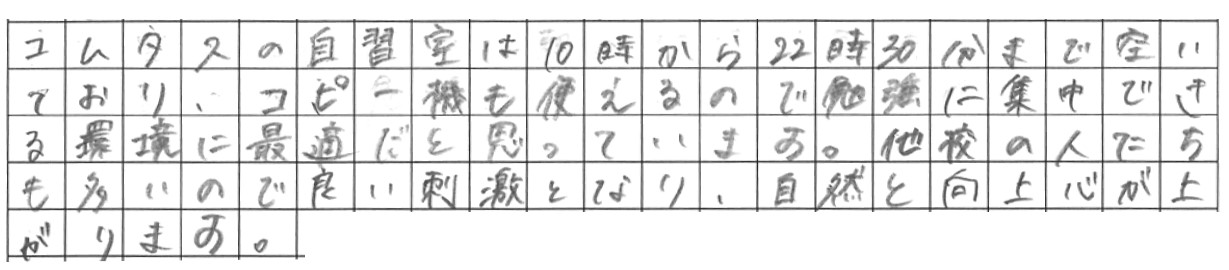 コムタスの自習室は10時から22時30分まで空い
ており、コピー機も使えるので勉強に集中でき
る環境に最適だと思っています。他校の人たち
も多いので良い刺激となり、自然と向上心が上
がります。